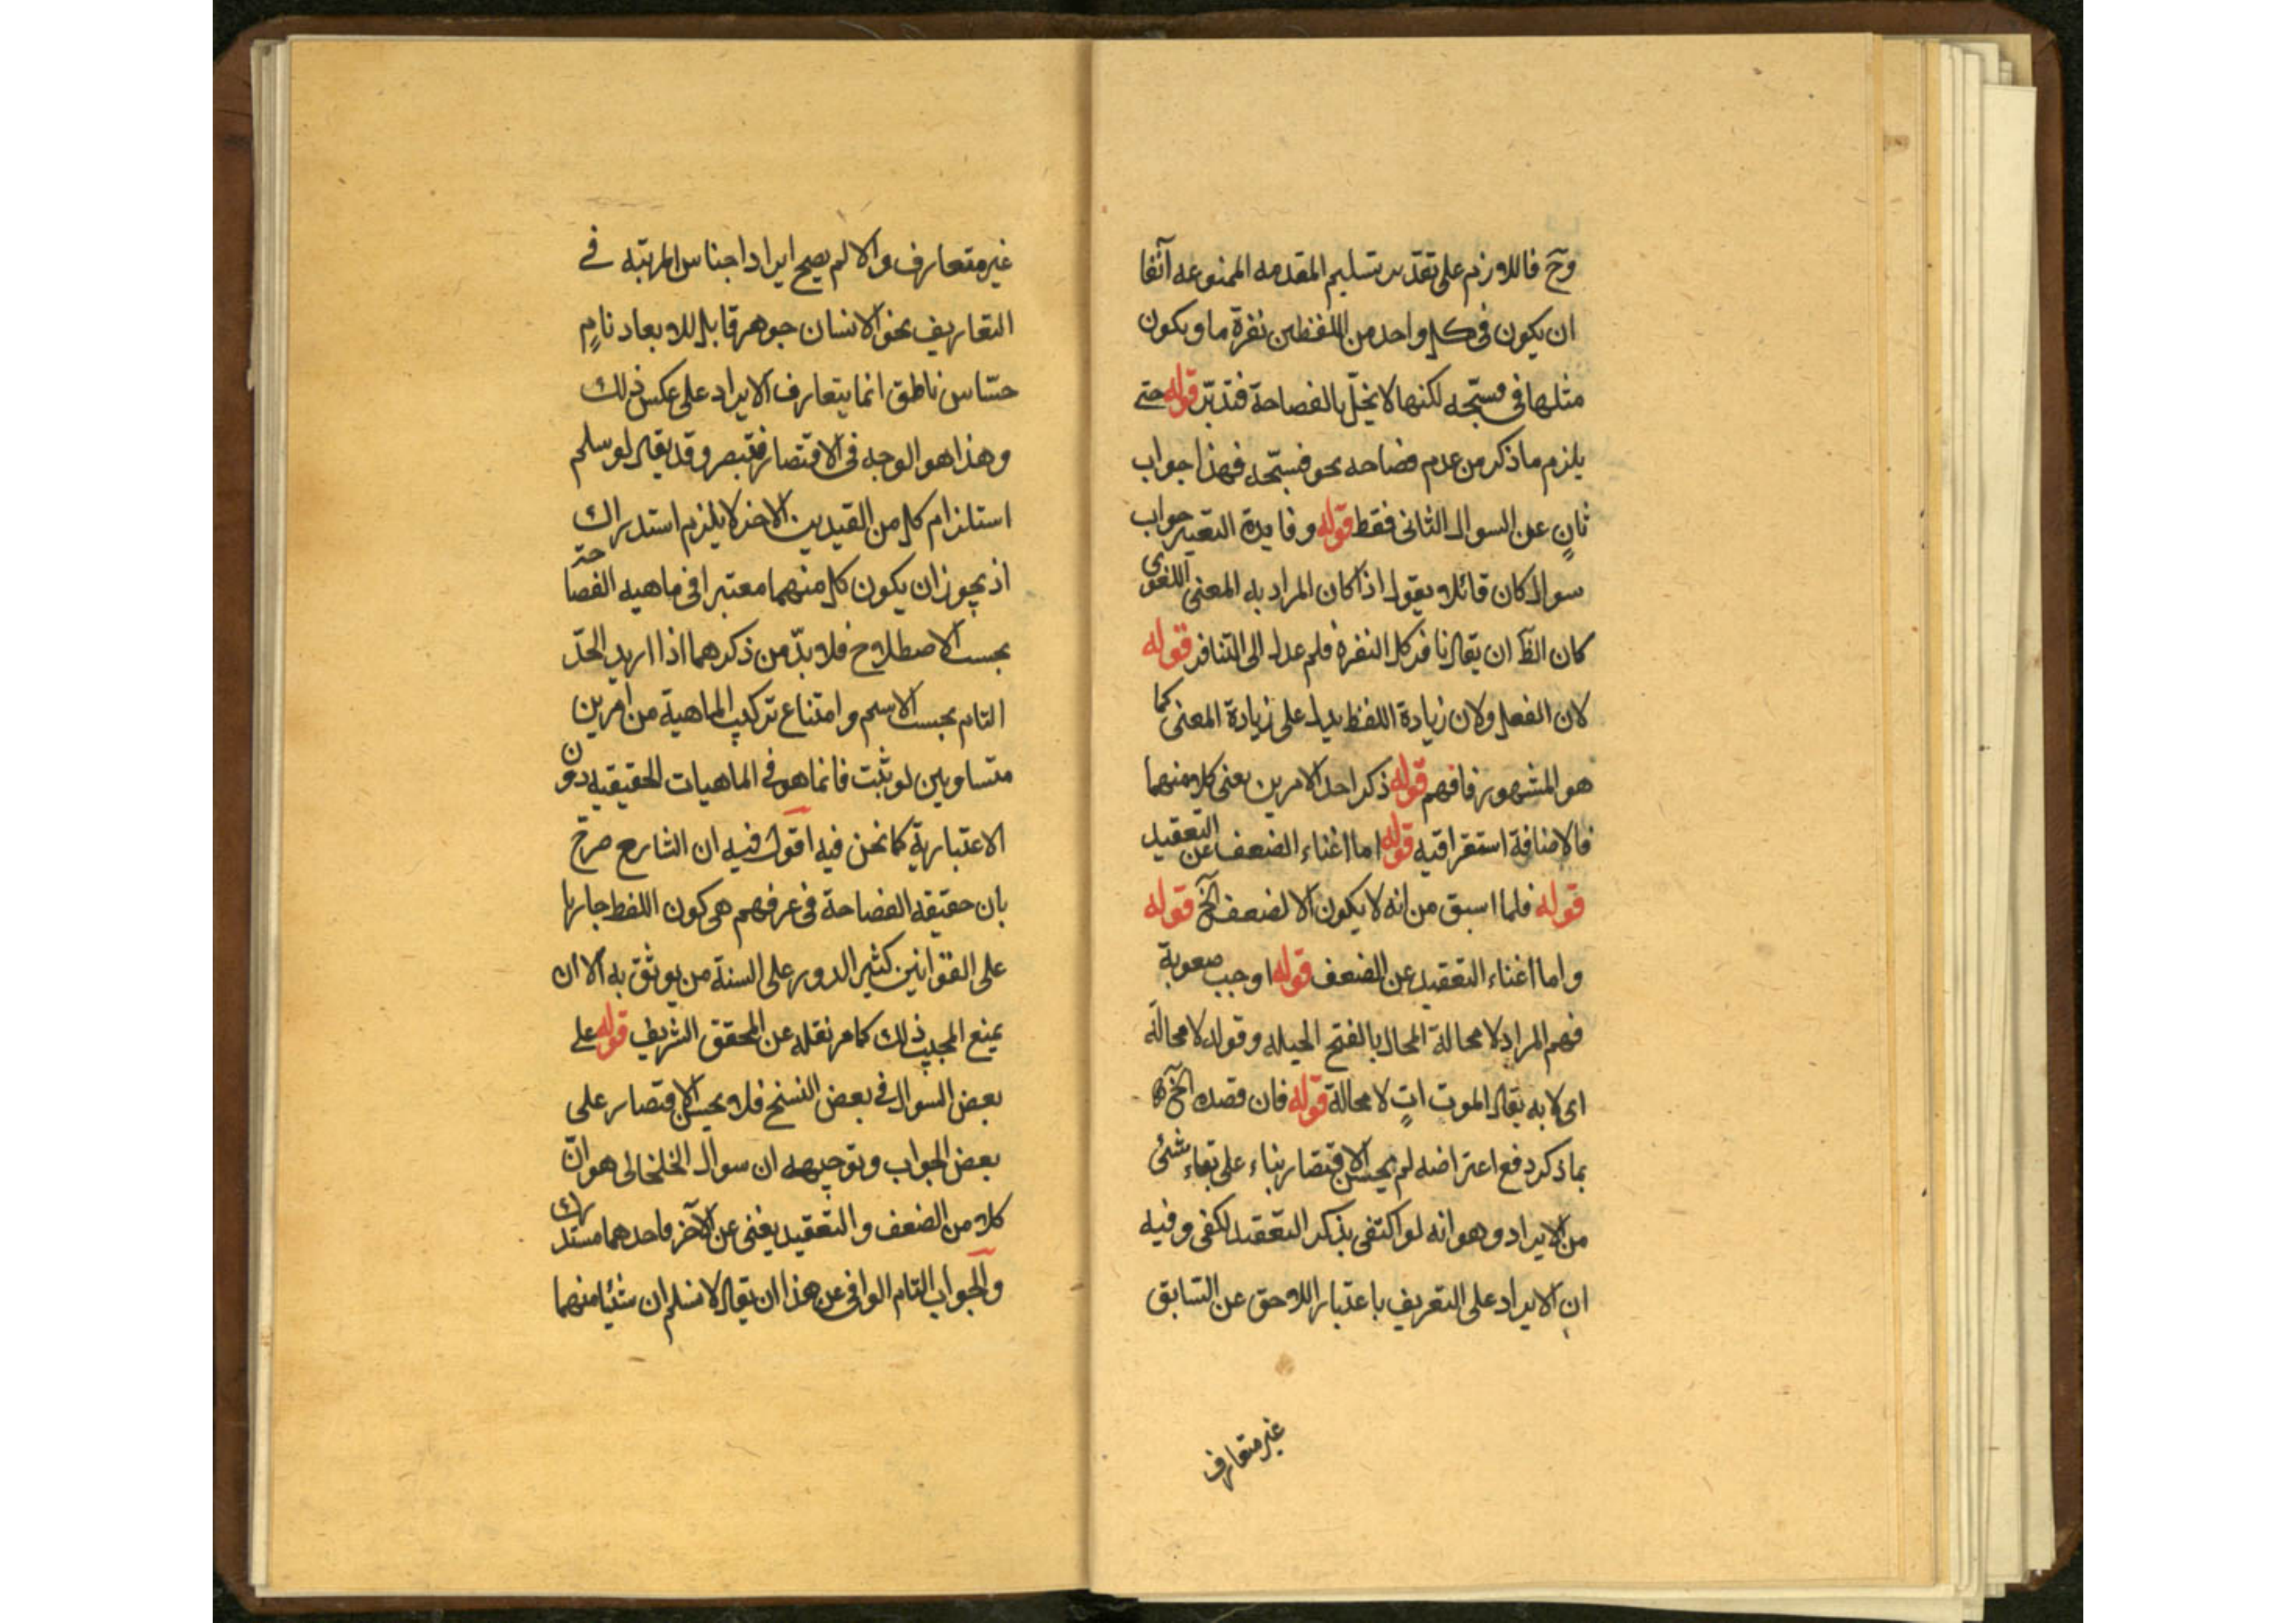 وح فاللازم على تقدير تسليم المقدمه الممنوعه آنفا
ان يكون فى كل واحد من اللفظين نفرة ما ويكون
مثلها فى مسبّحه لكنها لا يخلّ بالفصاحة فتدبّر قوله حتى
يلزم ما ذكر من عدم فصاحه نحو فسبّحه فهذا جواب
ثانٍ عن السوال الثانى فقط قوله وفايدة التعبير جواب
سوال كان قائلا يقول اذا كان المراد به المعنى اللغوى
كان الظ ان يقال نافر كل النفرة فلم عدل الى التنافر قوله
لان الفعل ولان زيادة اللفظ يدل على زيادة المعنى كما
هو المشهور فافهم قوله ذكر احد الامرين يعنى كلا منهما
فالاضافة استغراقيه قوله اما اغناء الضعف عن التعقيد
قوله فلما اسبق من انه لا يكون الا لضعف الخ قوله
واما اغناء التعقيد عن الضعف قوله اوجب صعوبة
فهم المراد لا محالة المحال بالفتح الحيله وقوله لا محالة
اى لا بد يقال الموت اتٍ لا محالة قوله فان قصد الخ
بما ذكر دفع اعتراضه لم يحسن الاقتصار بناء على بقاء شئ
من الايراد وهو انه لو اكتفى بذكر التعقيد لكفى وفيه
ان الايراد على التعريف باعتبار اللاحق عن السابق
غير متعارف
غير متعارف والا لم يصح ايراد اجناس المرتبه فى
التعاريف نحو الانسان جوهر قابل للابعاد نامٍ
حسّاس ناطق انما يتعارف الايراد على عكس ذلك
وهذا هو الوجه فى الاقتصار فتبصر وقد يقال لو سلم
استلزام كل من القيدين الاخر لا يلزم استدراك
اذ يجوز ان يكون كل منهما معتبرا فى ماهيه الفصاحة
بحسب الاصطلاح فلا بدّ من ذكرهما اذا اريد الحدّ
التام بحسب الاسم وامتناع تركيب الماهية من امرين
متساويين لو ثبت فانما هو فى الماهيات الحقيقيه دون
الاعتبارية كما نحن فيه اقول فيه ان الشارح صرح
بان حقيقه الفصاحة فى عرفهم هى كون اللفظ جاريا
على القوانين كثير الدور على السنة من يوثق به الا ان
يمنع المجيب ذلك كما مر نقله عن المحقق الشريف قوله على
بعض السوال فى بعض النسخ فلا يحسن الاقتصار على
بعض الجواب وتوجيهه ان سوال الخلخالى هو انّ
كلا من الضعف والتعقيد يغنى عن الآخر فاحدهما مستدرك
والجواب التام الوافى عن هذا ان يقال لا نسلم ان شيئا منهما